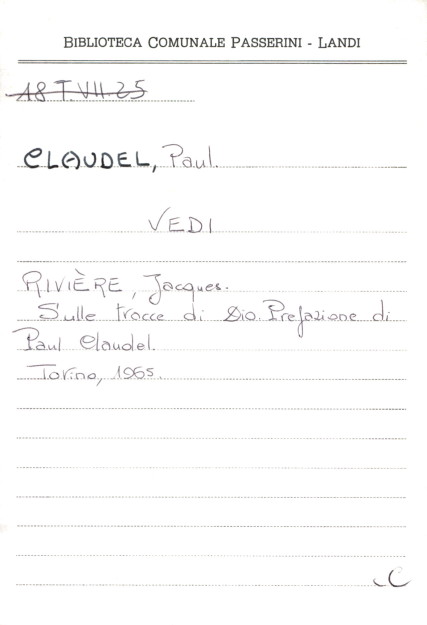 BIBLIOTECA COMUNALE PASSERINI - LANDI
18 T.VII 25
CLAUDEL, Paul.
VEDI
RIVIÈRE, Jacques.
Sulle tracce di Dio. Prefazione di
Paul Claudel.
Torino, 1965.
C